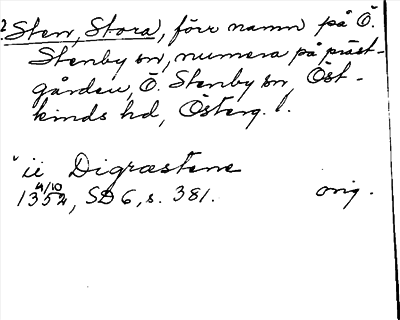 Sten, Stora, förr namn på Ö.
Stenby sn, numera på präst-
gården, Ö. Stenby sn, Öst-
kinds hd, Österg. l.
ii Digræstene
4/10
1352, SD 6, s. 381. orig.